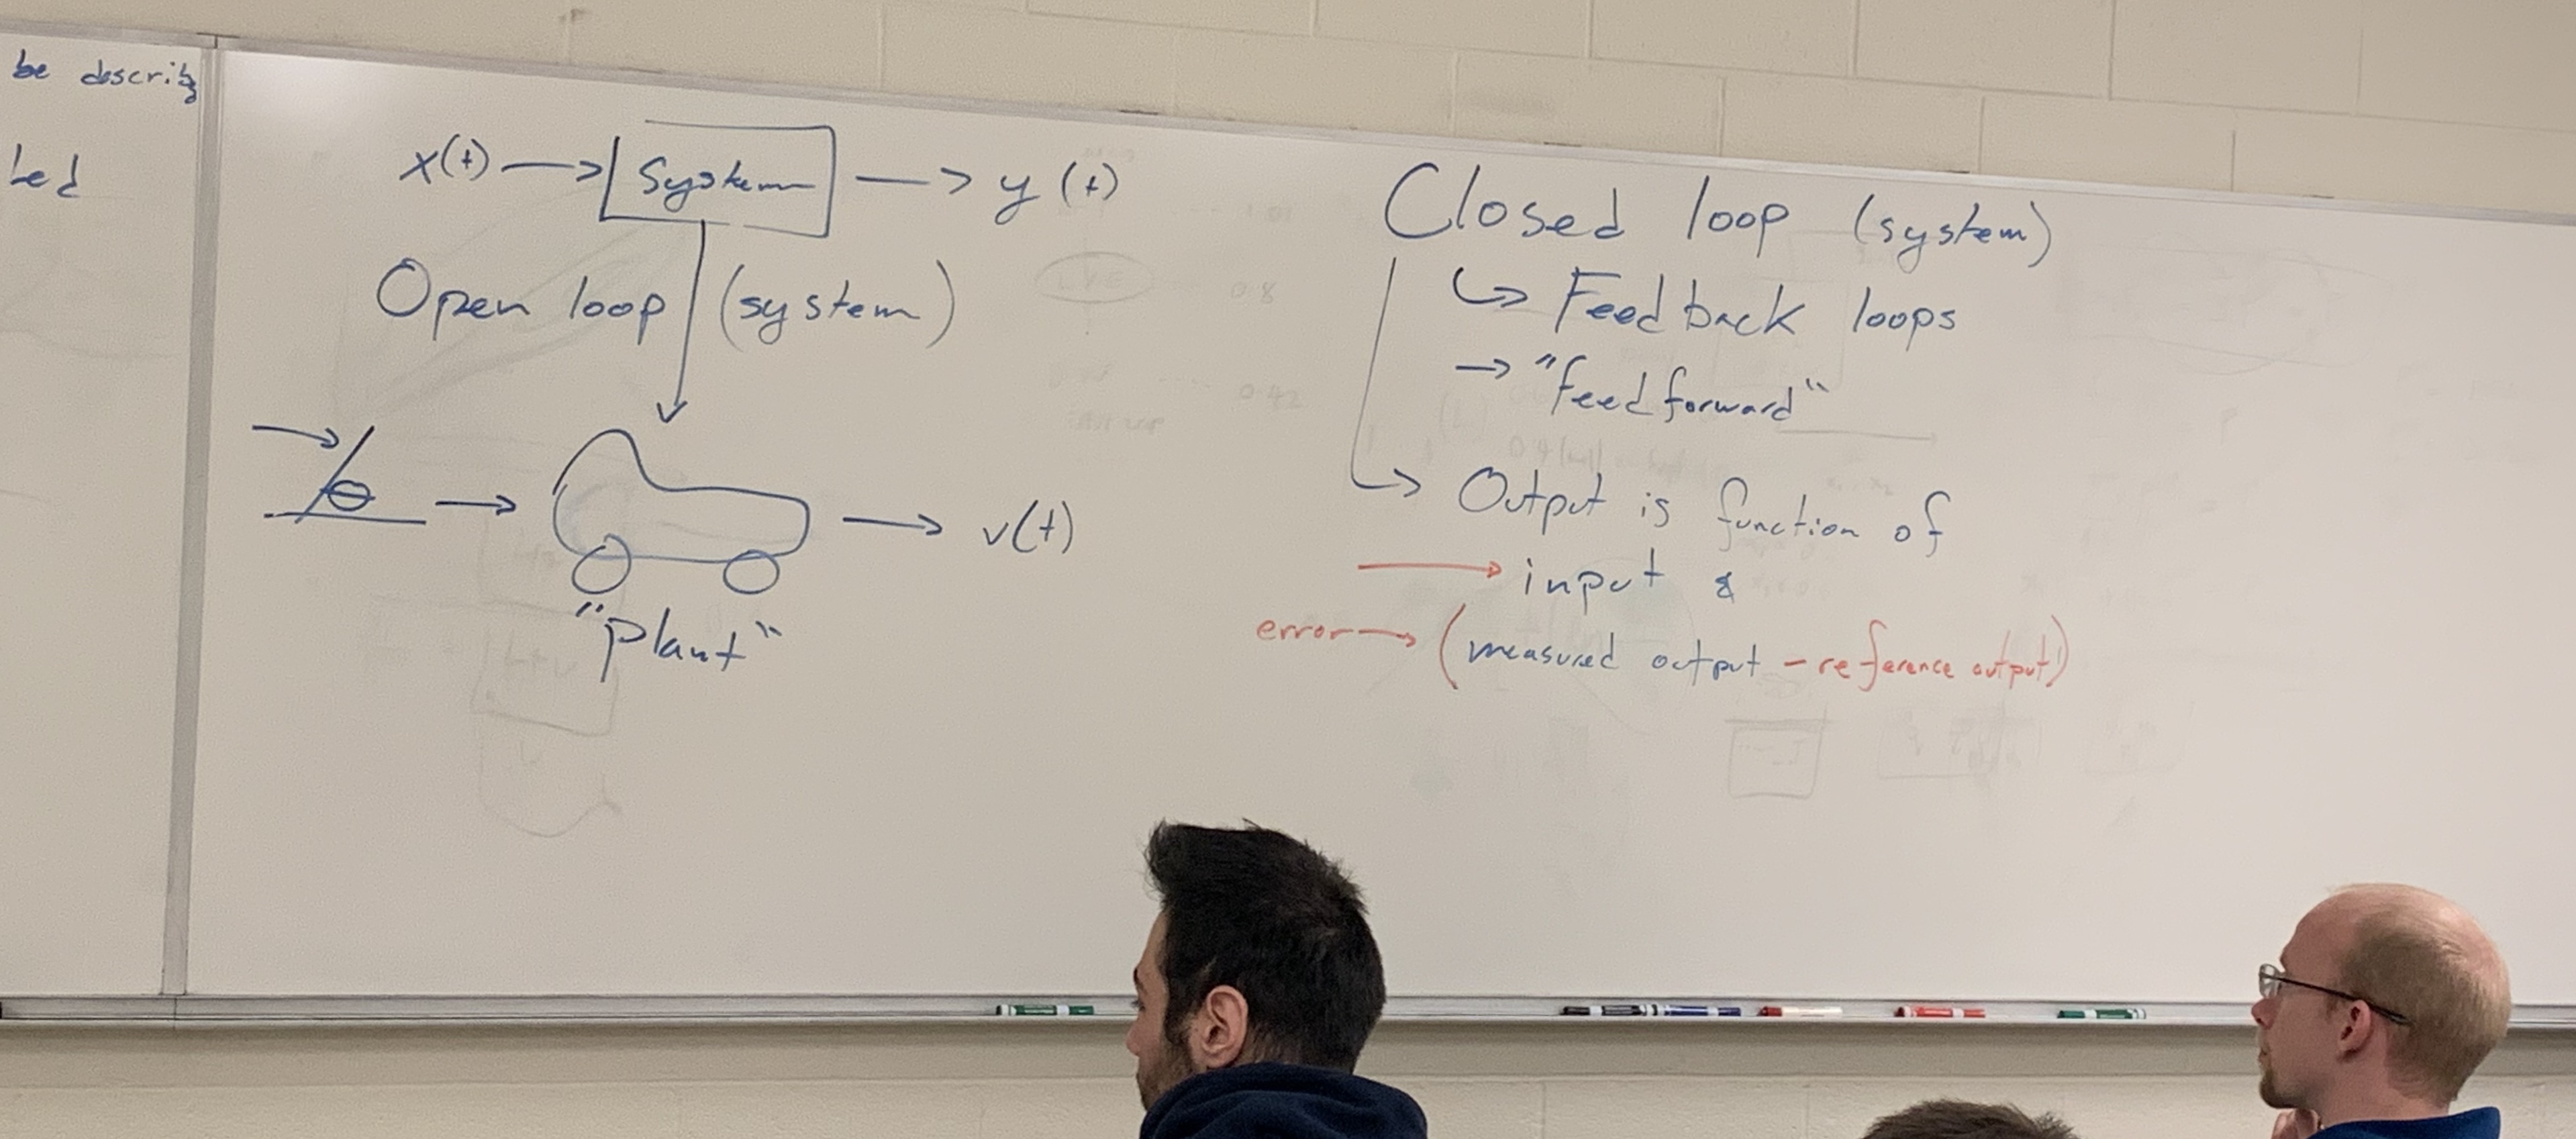 be describ
bed
x(t) → System → y(t)
Open loop (system)
θ
v(t)
"plant"
Closed loop (system)
↳ Feedback loops
→ "feed forward"
↳ Output is function of
→ input &
error → (measured output - reference output)